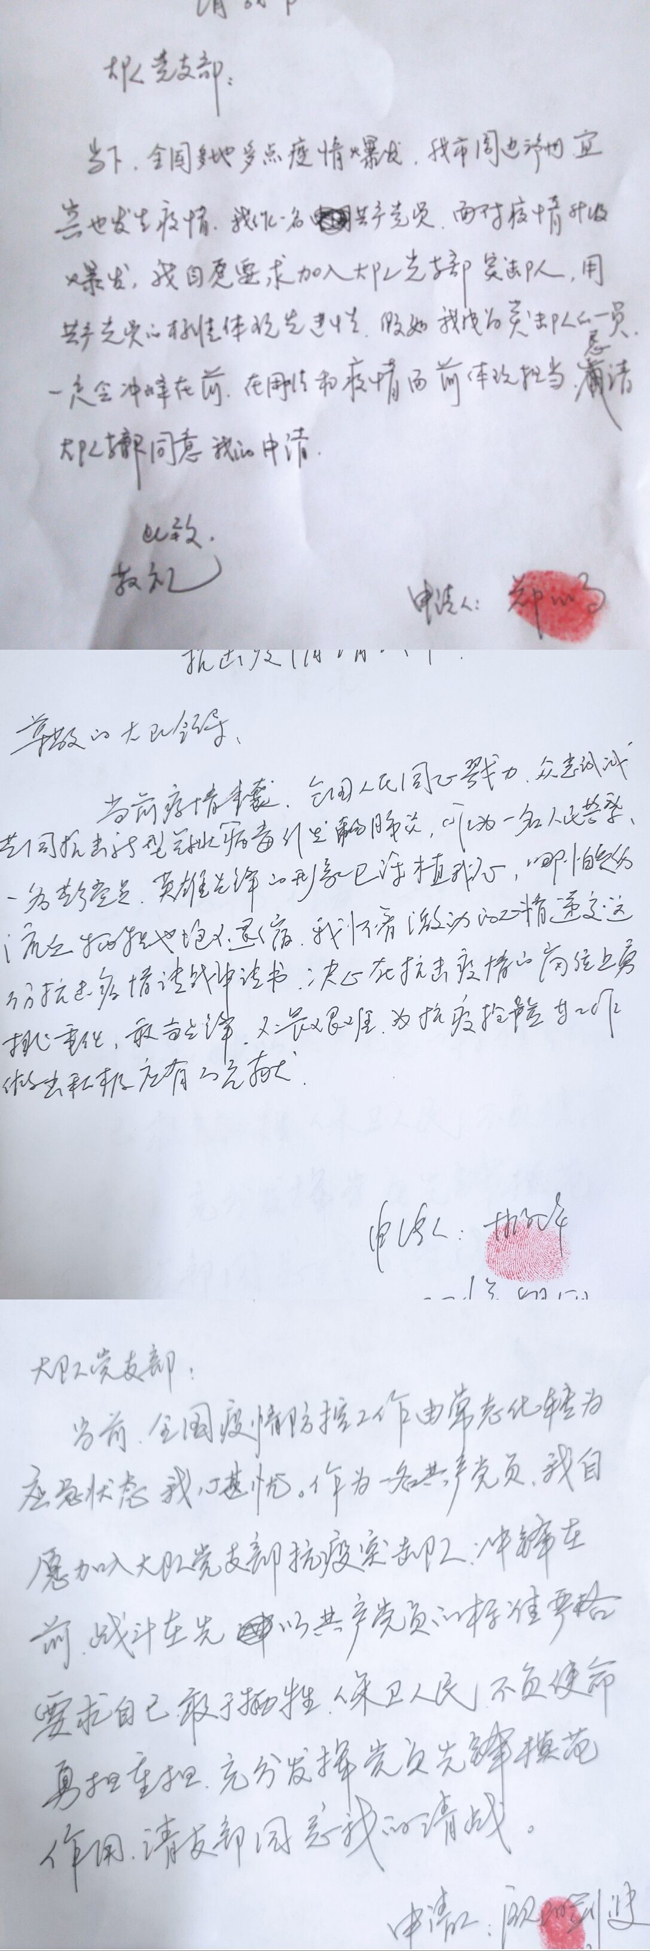 大队党支部：
当下，全国多地多点疫情爆发，我市周边 宜
也发生疫情，我作一名共产党员，面对疫情
爆发，我自愿要求加入大队党支部突击队，用
共产党员的标准体现先进性，假如我成为突击队的一员，
一定会冲锋在前，在 疫情面前体现担当，恳请
大队支部同意我的申请。
此致
敬礼
申请人：郑
尊敬的大队领导、
当前疫情 ，全国人民同心戮力，众志成城
共同抗击新型冠状病毒引发的肺炎，作为一名人民警察、
一名共产党员，英雄先锋的形象已深植我心，哪怕
流血牺牲也绝不退缩，我怀着激动的心情递交这
份抗击疫情请战申请书，决心在抗击疫情的岗位上勇
挑重任，敢当先锋，不畏艰难，为抗疫 工作
做出积极应有的贡献。
申请人：
大队党支部：
当前，全国疫情防控工作由常态化转为
应急状态，我心甚忧。作为一名共产党员，我自
愿加入大队党支部抗疫突击队，冲锋在
前，战斗在先，以共产党员的标准严格
要求自己，敢于牺牲，保卫人民，不负使命
勇担重担，充分发挥党员先锋模范
作用，请支部同意我的请战。
申请人：